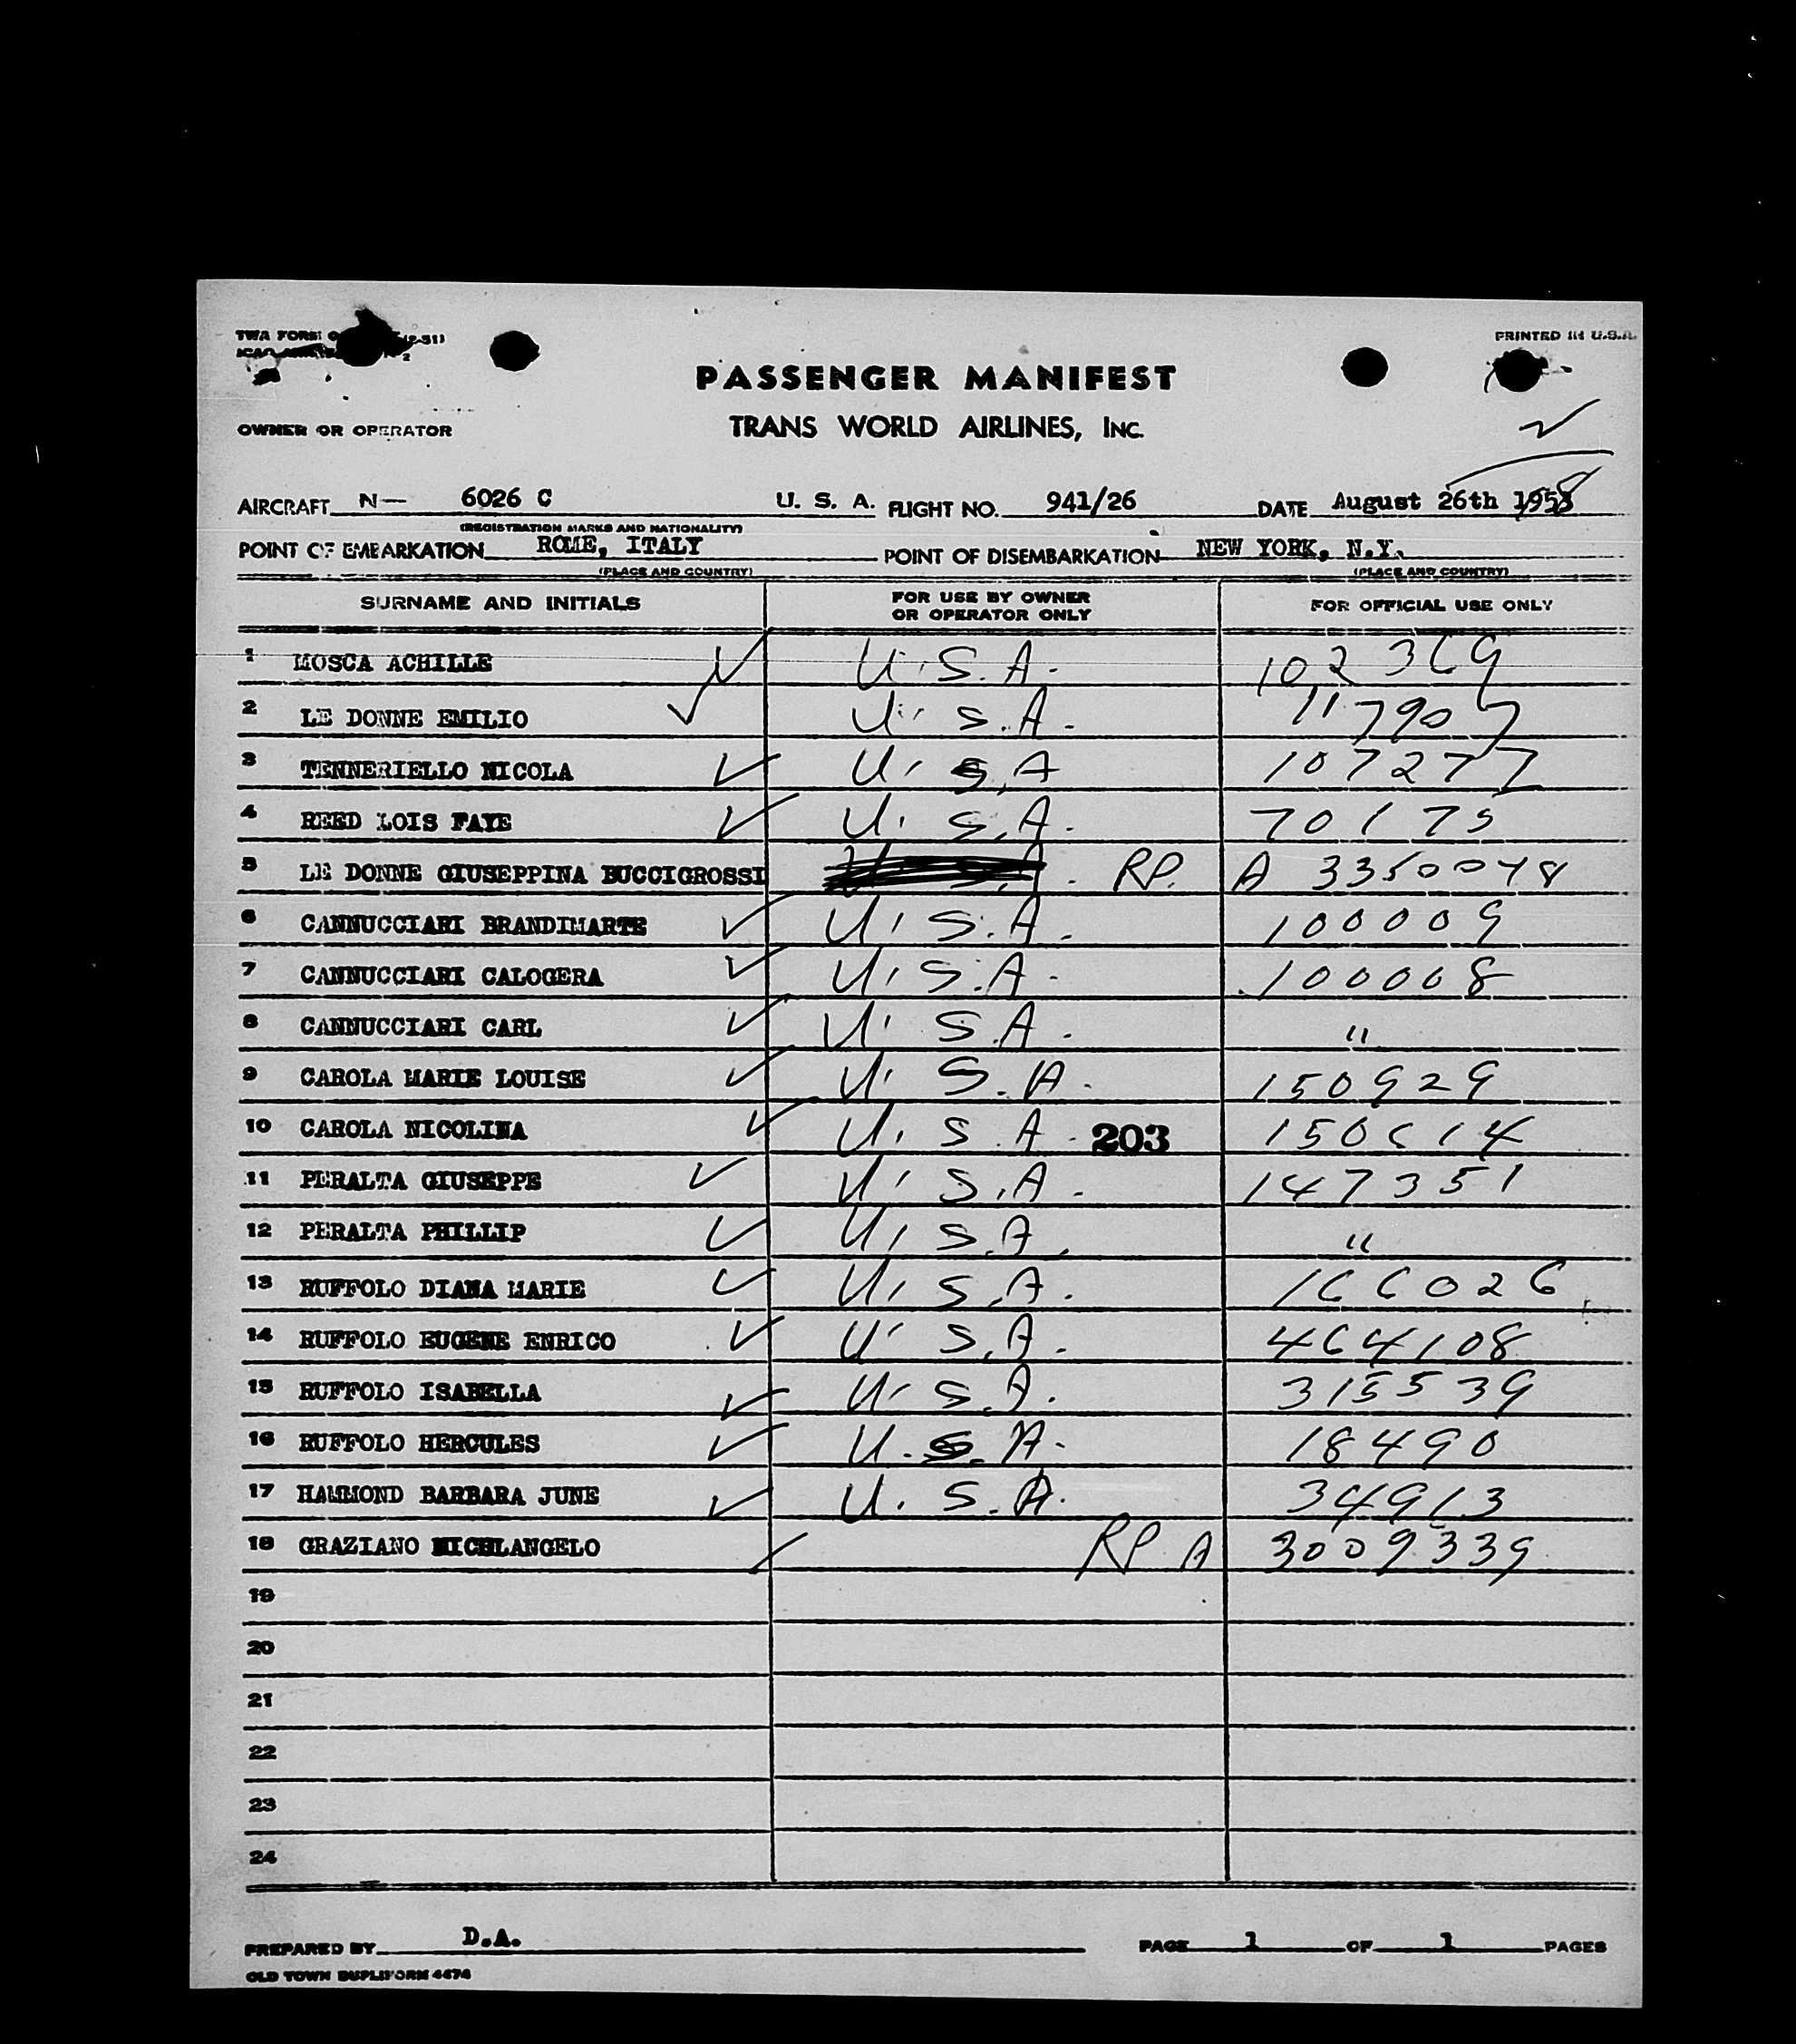 TWA FORM
PRINTED IN U.S.A.
PASSENGER MANIFEST
OWNER OR OPERATOR
TRANS WORLD AIRLINES, INC.
AIRCRAFT N— 6026 C U. S. A. FLIGHT NO. 941/26 DATE August 26th
(REGISTRATION MARKS AND NATIONALITY)
POINT OF EMBARKATION ROME, ITALY POINT OF DISEMBARKATION NEW YORK, N.Y.
(PLACE AND COUNTRY) (PLACE AND COUNTRY)
SURNAME AND INITIALS FOR USE BY OWNER OR OPERATOR ONLY FOR OFFICIAL USE ONLY
1 MOSCA ACHILLE U.S.A. 102369
2 LE DONNE EMILIO U.S.A. 117907
3 TENNERIELLO NICOLA U.S.A 107277
4 REED LOIS FAYE U.S.A. 70175
5 LE DONNE GIUSEPPINA BUCCIGROSSI RP. A 3350048
6 CANNUCCIARI BRANDIMARTE U.S.A. 100009
7 CANNUCCIARI CALOGERA U.S.A. 100008
8 CANNUCCIARI CARL U.S.A. "
9 CAROLA MARIE LOUISE U.S.A. 150929
10 CAROLA NICOLINA U.S.A. 203 150614
11 PERALTA GIUSEPPE U.S.A. 147351
12 PERALTA PHILLIP U.S.A. "
13 RUFFOLO DIANA MARIE U.S.A. 166026
14 RUFFOLO EUGENE ENRICO U.S.A. 464108
15 RUFFOLO ISABELLA U.S.A. 315539
16 RUFFOLO HERCULES U.S.A. 18490
17 HAMMOND BARBARA JUNE U.S.A. 34913
18 GRAZIANO MICHLANGELO RP A 3009339
19
20
21
22
23
24
PREPARED BY D.A. PAGE 1 OF 1 PAGES
OLD TOWN DUPLIFORM 4474